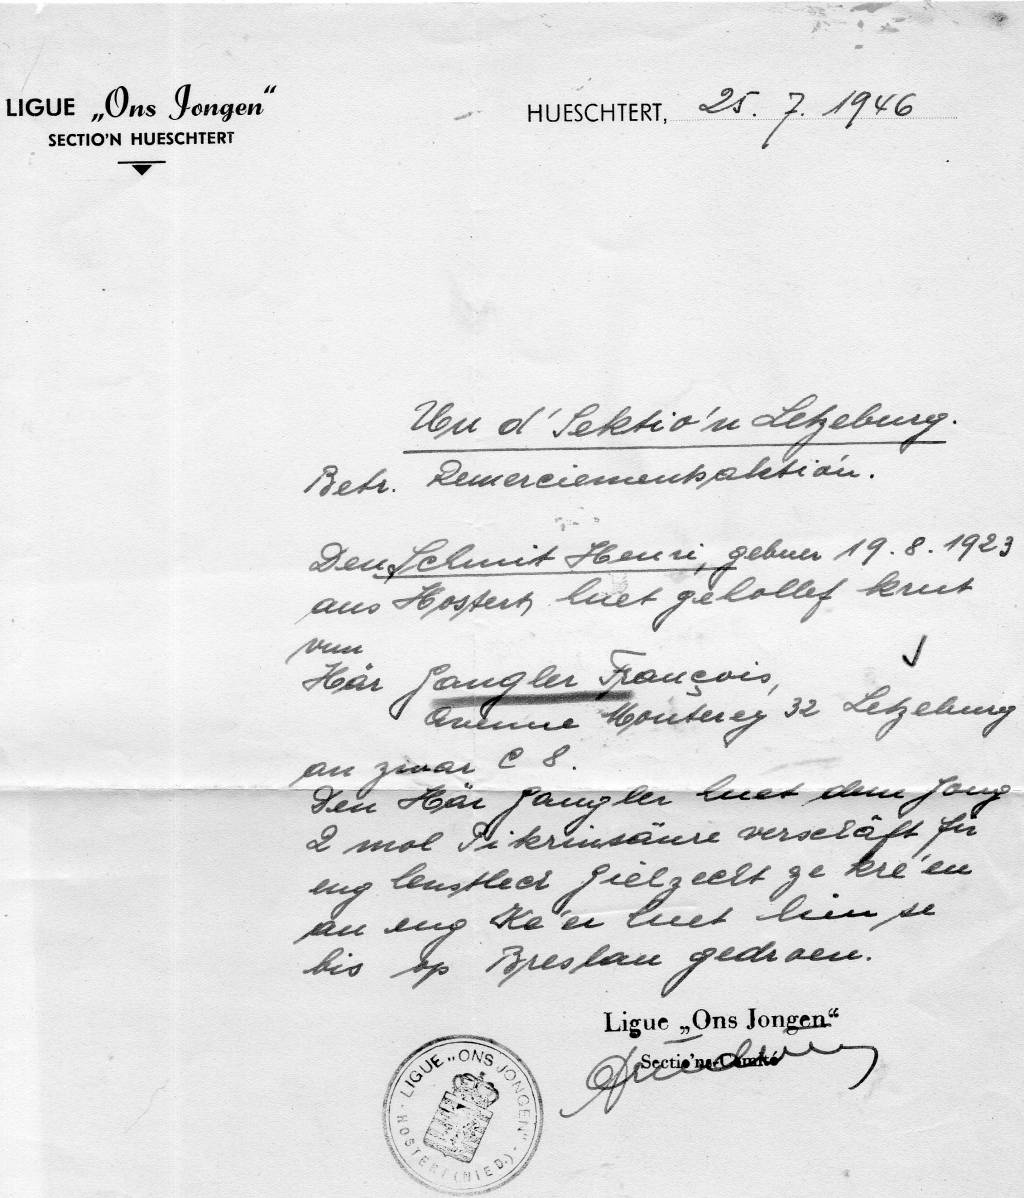 LIGUE „Ons Jongen“
SECTIO'N HUESCHTERT
HUESCHTERT, 25. 7. 1946
Un d' Sektio'n Letzeburg.
Betr. Remerciementsaktio'n.
Den Schmit Henri, gebuer 19. 8. 1923
aus Hostert, huet gehollef krut
vum
Här Gangler François,
Avenue Monterey 32 Letzeburg
an zwar C 8.
Den Här Gangler huet dem Jong
2 mol Pikrinsäure verschäft fir
eng Gielzecht ze kre'en
an eng Ke'er huet hien se
bis op Breslau gedroen.
Ligue „Ons Jongen“
Sectio'ns-Comité
LIGUE „ONS JONGEN“
HOSTERT (NIED.)